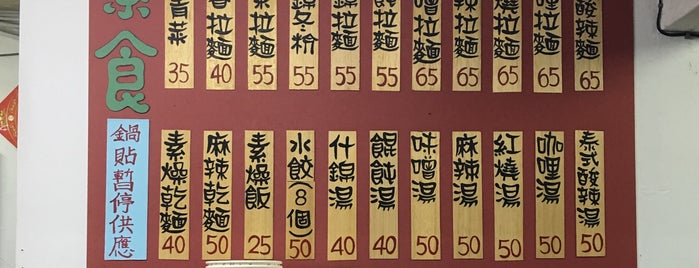 食
青菜 35
拉麵 40
拉麵 55
粉 55
拉麵 55
拉麵 55
拉麵 65
辣拉麵 65
燒拉麵 65
哩拉麵 65
酸辣麵 65
鍋貼暫停供應
素燥乾麵 40
麻辣乾麵 50
素燥飯 25
水餃(8個) 50
什錦湯 40
餛飩湯 40
味噌湯 50
麻辣湯 50
紅燒湯 50
咖哩湯 50
泰式酸辣湯 50